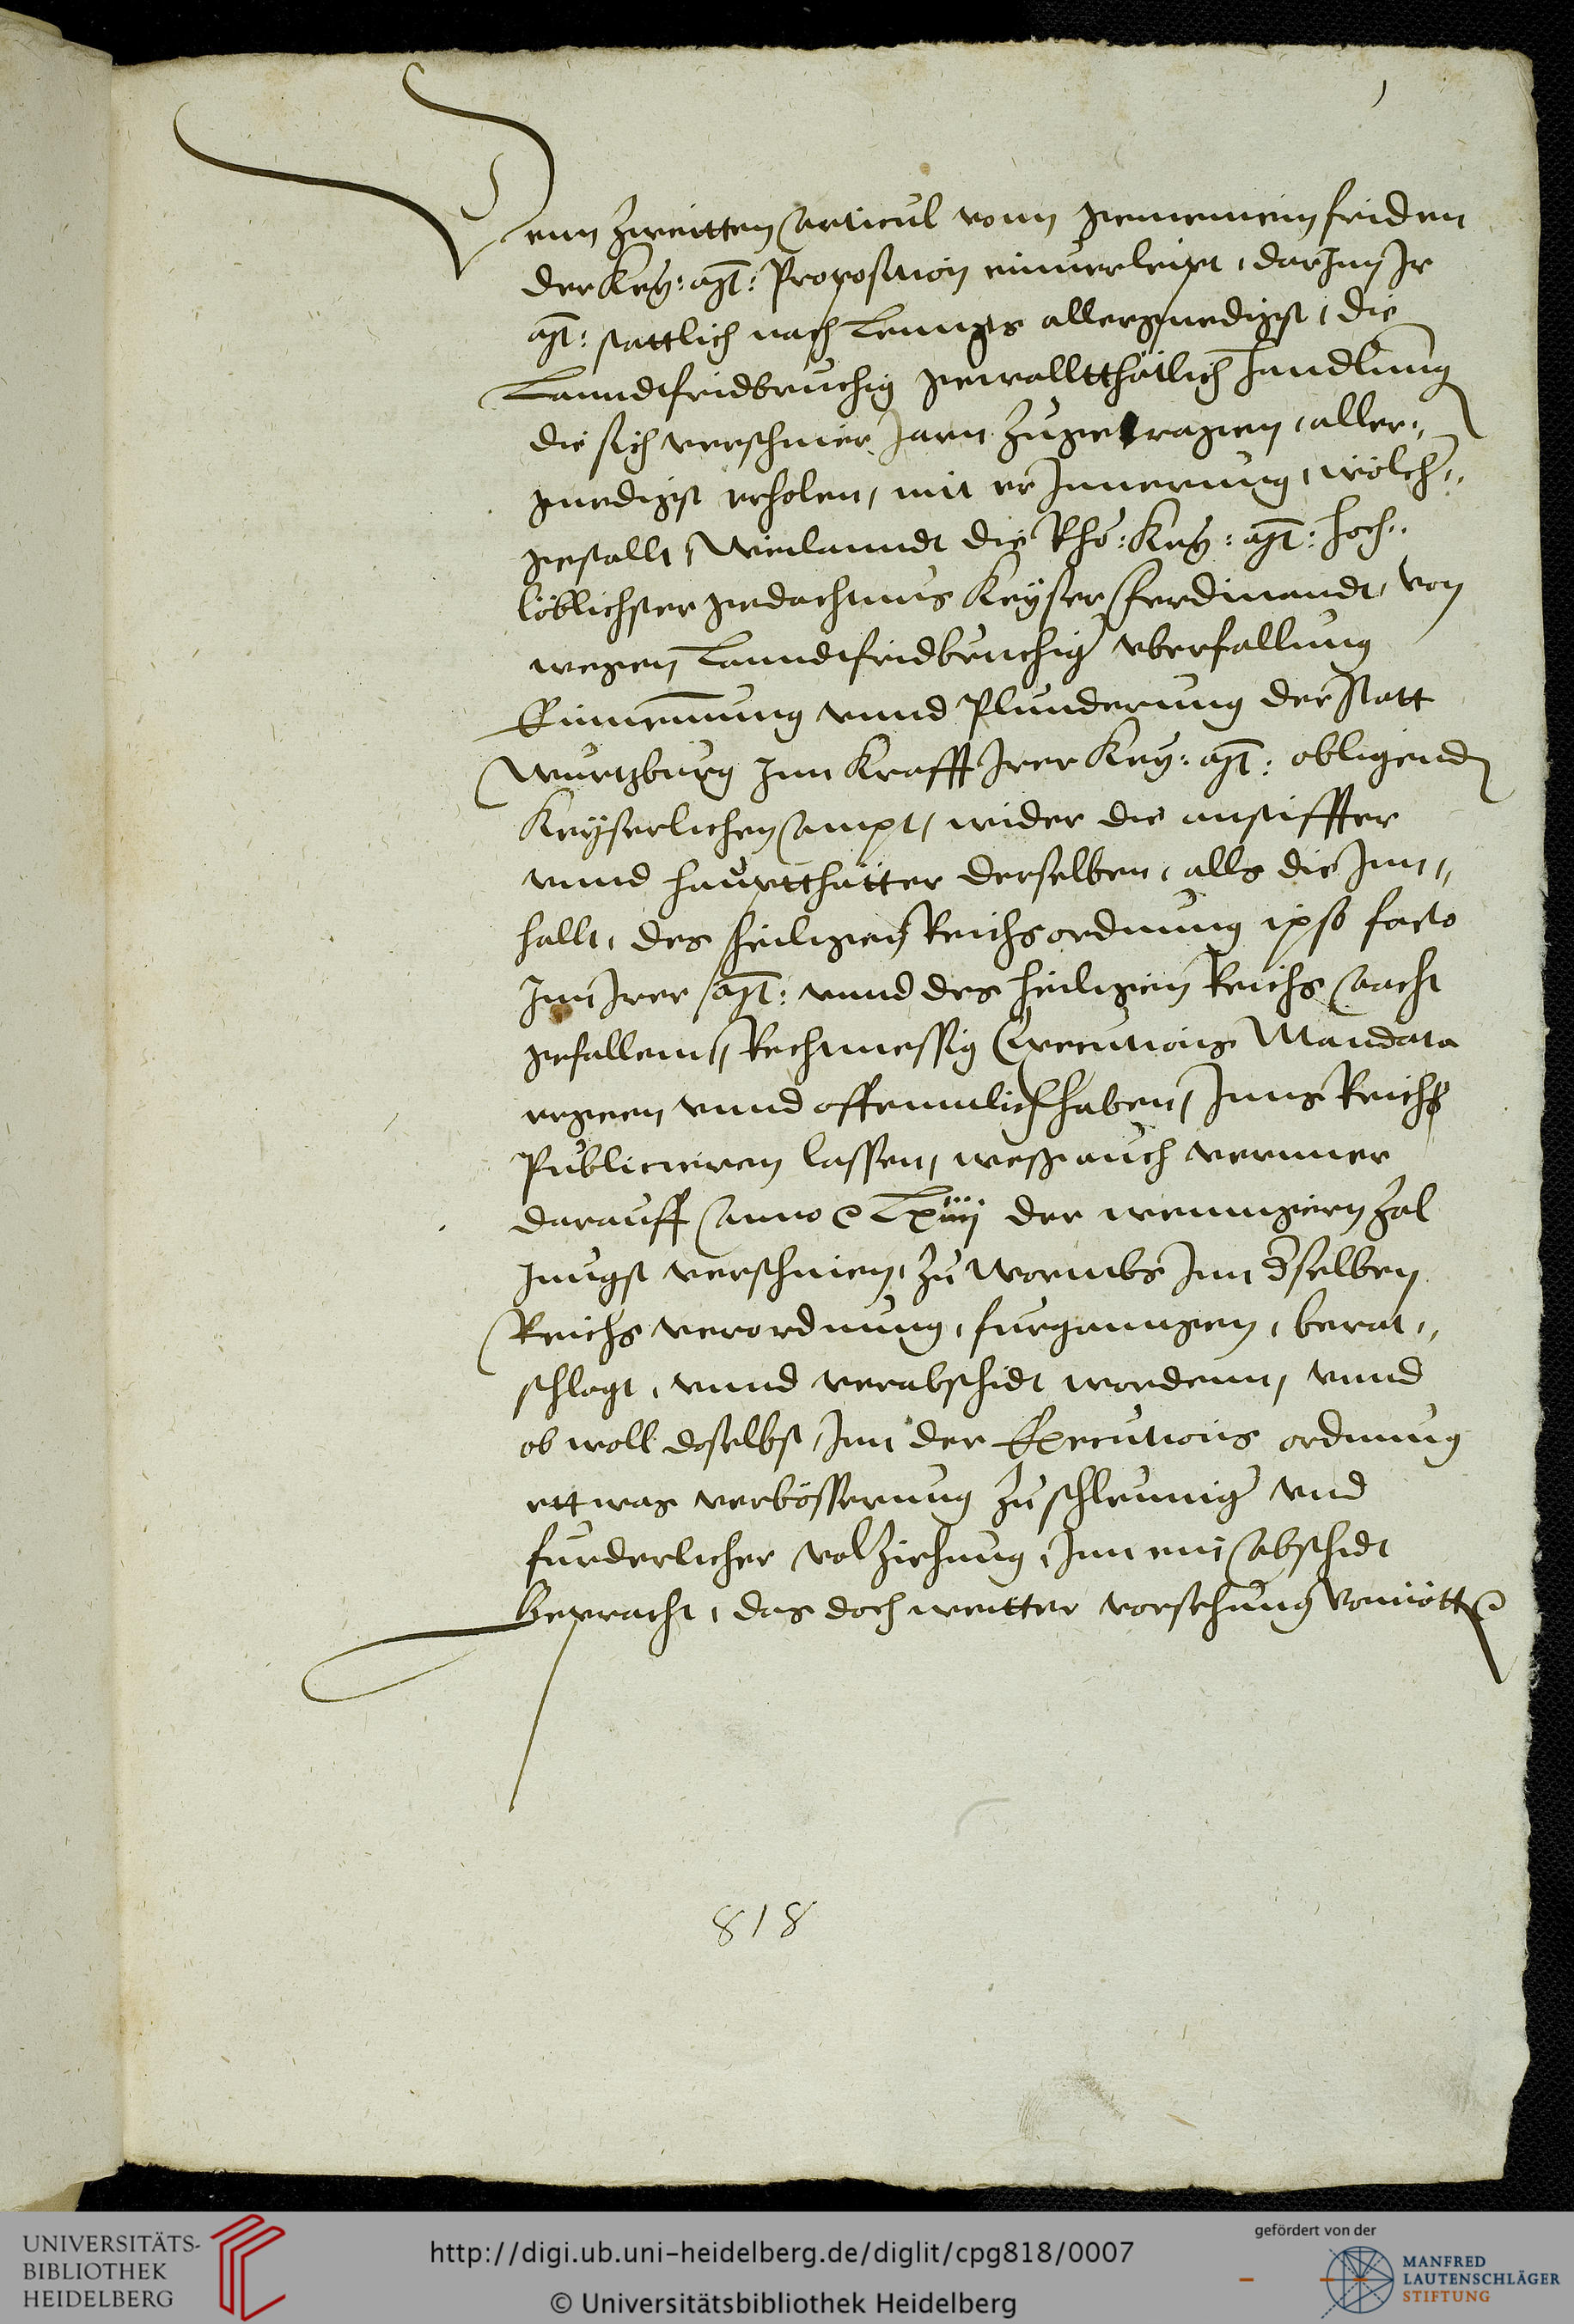 1
Denn zweitten Articul vonn gemeinem friden
der Key: Mt: Proposition einuerleipt, darInn Ir
Mt: stattlich nach Lenngs allergnedigst, die
Lanndtfridbruchig gewalltthätlich Handlung
die sich verschiner Jarn zugetragen, aller„
gnedigst erholen, mit erInnerung, wölch„
gestallt, Weilanndt die Rhö: Key: Mt: hoch„
löblichster gedachtnus Keyser Ferdinandt, von
wegen Lanndtfridbruchig vberfallung
Einnemung vnnd Plunderung der Statt
Wurtzburg Inn Krafft Irer Key: Mt: obligend
Keyserlichen Ampt, wider die anstiffter
vnnd haupttthätter derselben, alls die Inn„
hallt, des heiligen Reichsordnung ipso facto
Inn Irer Mt: vnnd des heiligen Reichs Aacht
gefallenn, Rechtmessig Executions Mandata
ergeen vnnd offennlich haben, Inns Reich
Publicieren lassen, weß auch vermer
darauff Anno &c Lxiiij der wenngern zal
Jungst verschinen, zu Wormbs Inn dselben
Reichs verordnung, furganngen, berat„
schlagt, vnnd verabschidt wordenn, vnnd
ob woll daselbst, Inn der Executions ordnung
ettwas verbösserung zu schleunig vnd
furderlicher volziehung, Inn ein Abschidt
Bepracht, das doch weitter vorsehung vonnött
818
UNIVERSITÄTS-
BIBLIOTHEK
HEIDELBERG
http://digi.ub.uni-heidelberg.de/diglit/cpg818/0007
© Universitätsbibliothek Heidelberg
gefördert von der
MANFRED
LAUTENSCHLÄGER
STIFTUNG